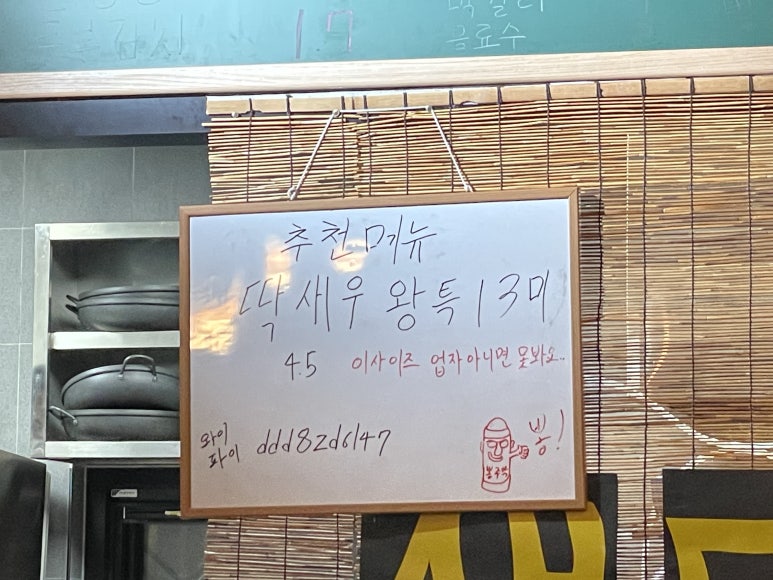 17
막걸리
음료수
추천메뉴
딱새우 왕특 13미
4.5 이사이즈 업자아니면 못봐요..
와이
파이 ddd82d6147
뽕!